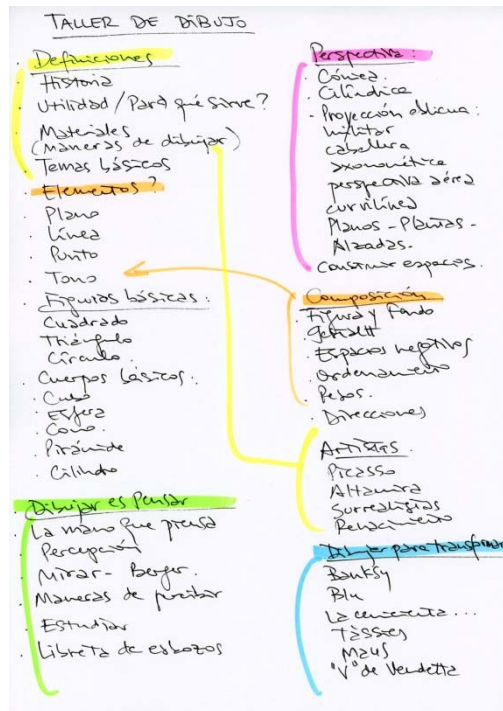 TALLER DE DIBUJO
. Definiciones
. Historia
. Utilidad / Para qué sirve?
. Materiales
(maneras de dibujar)
. Temas básicos
. Elementos?
. Plano
. Línea
. Punto
. Tono
. Figuras básicas:
Cuadrado
Triángulo
Círculo.
. Cuerpos básicos:
. Cubo
. Esfera
. Cono.
. Pirámide
. Cilindro
. Dibujar es Pensar
. La mano que piensa
. Percepción
. Mirar - Berger.
. Maneras de
. Estudiar
. Libreta de esbozos
Perspectiva:
. Cónica.
. Cilíndrica
. Proyección oblicua:
militar
caballera
axonométrica
perspectiva aérea
curvilínea
Planos - Plantas -
Alzadas.
Construir espacios.
Composición
. Figura y Fondo
. Gestalt
. Espacios negativos
. Ordenamiento
. Pesos.
. Direcciones
Artistas.
Picasso
Altamira
Surrealistas
Renacimiento
Dibujar para transformar
Banksy
Blu
La cenicienta...
Tàssies
Maus
"V" de Vendetta